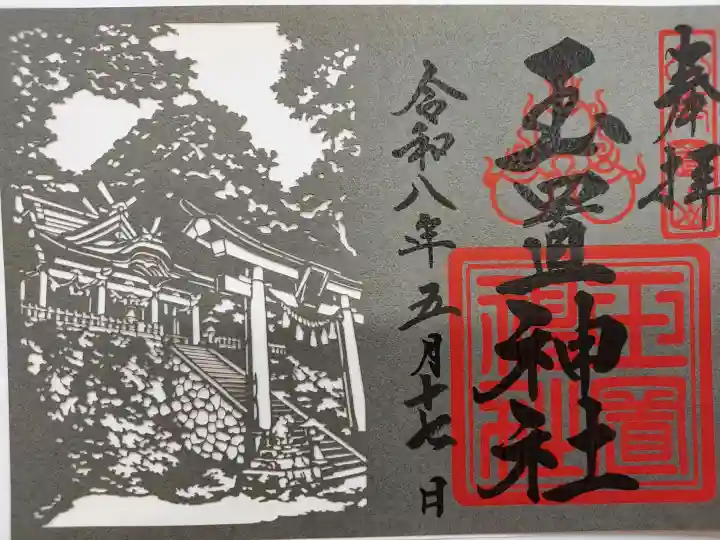 奉拝
玉置神社
玉置神社
令和八年五月十七日